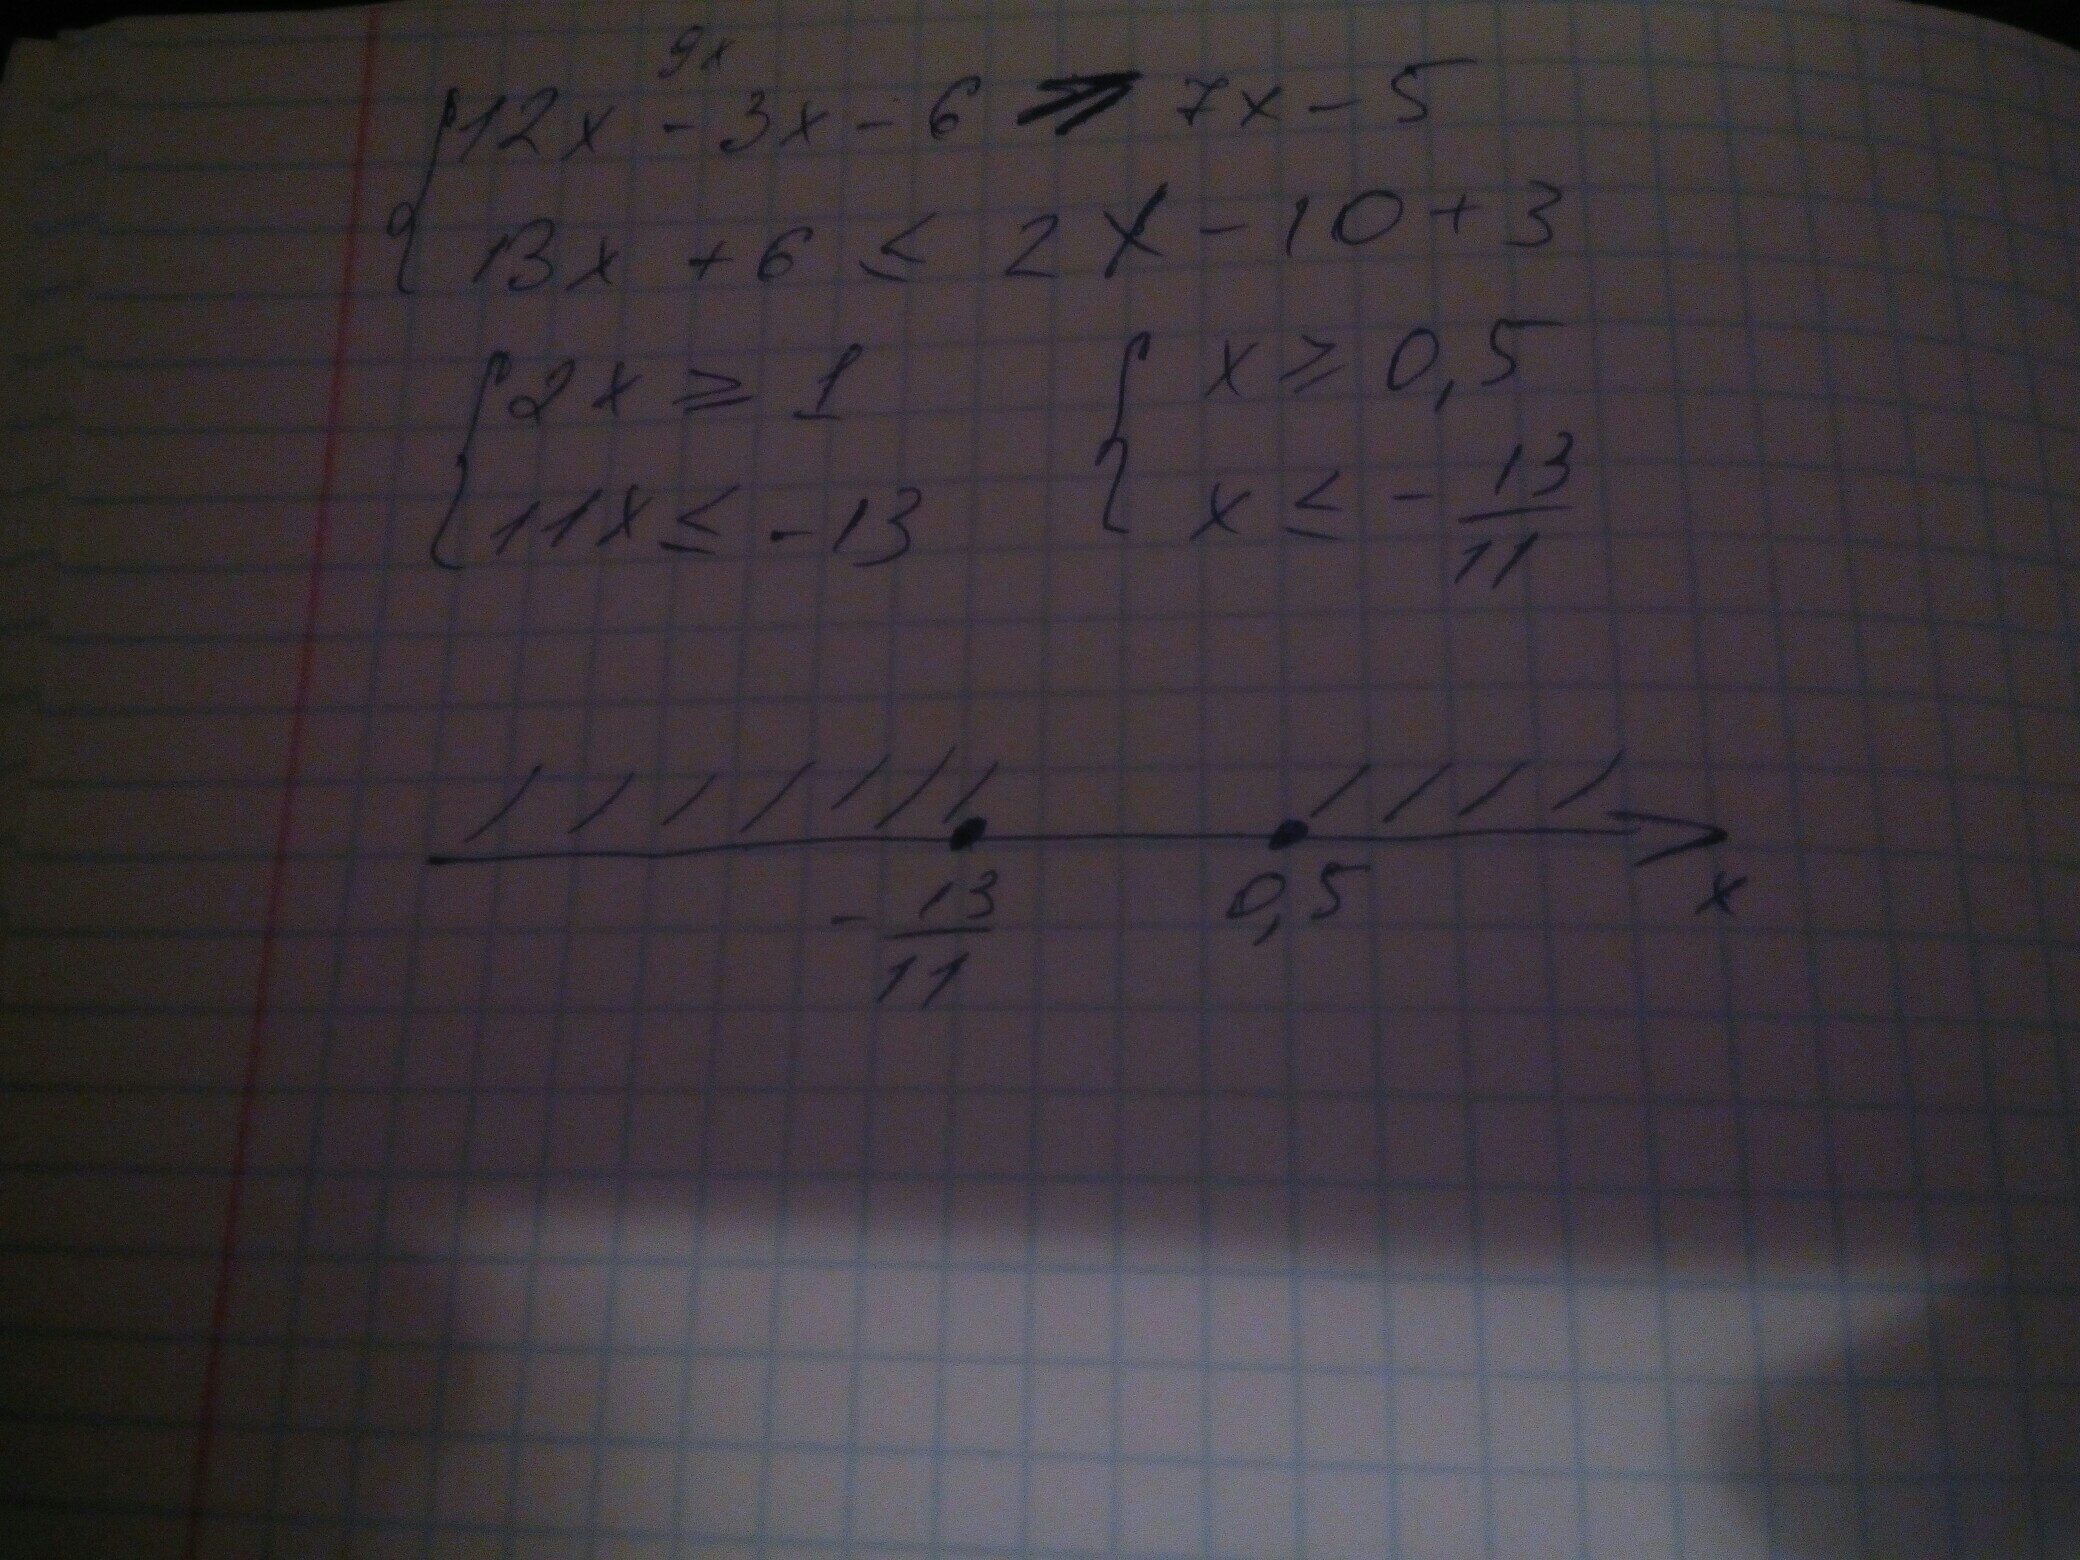 9x
12x - 3x - 6 ⩾ 7x - 5
13x + 6 ≤ 2x - 10 + 3
2x ⩾ 1
11x ≤ -13
x ⩾ 0,5
x ≤ - 13/11
- 13/11 0,5 x